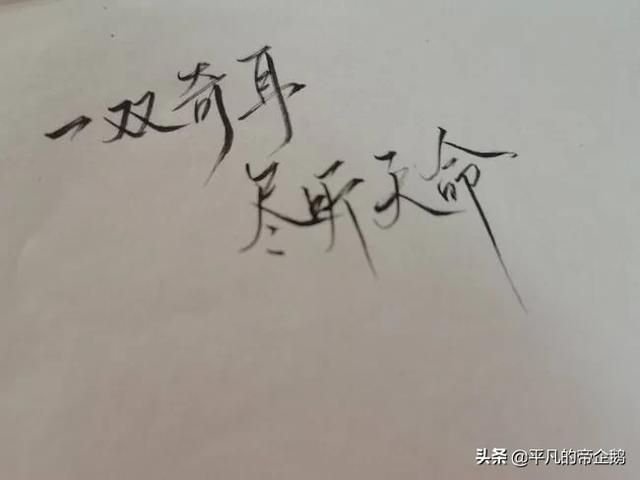 一双奇耳
尽听天命
头条 @平凡的帝企鹅